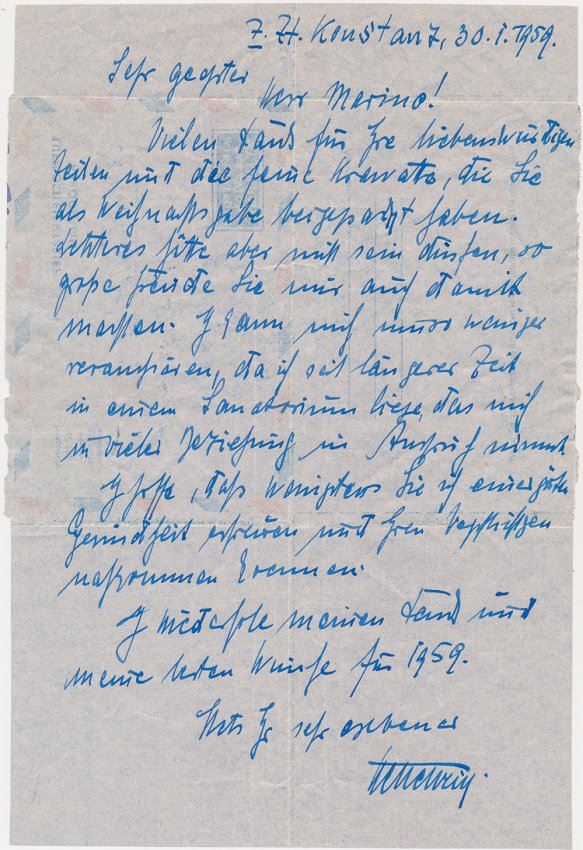 Z. Zt. Konstanz, 30. I. 1959.
Sehr geehrter
Herr Marino!
Vielen Dank für Ihre liebenswürdigen
Zeilen und die feine Krawatte, die Sie
als Weihnachtsgabe beigepackt haben.
Letzteres hätte aber nicht sein dürfen, so
große Freude Sie mir auch damit
machten. Ich kann mich umso weniger
revanchieren, da ich seit längerer Zeit
in einem Sanatorium liege, das mich
in vieler Beziehung in Anspruch nimmt.
Ich hoffe, daß wenigstens Sie sich einer guten
Gesundheit erfreuen und Ihren Pflichten
nachkommen können.
Ich wiederhole meinen Dank und
meine besten Wünsche für 1959.
Stets Ihr sehr ergebener